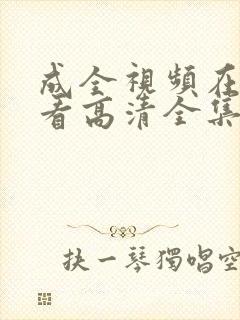 成全視頻在
看高清全集
抉一琴獨唱空